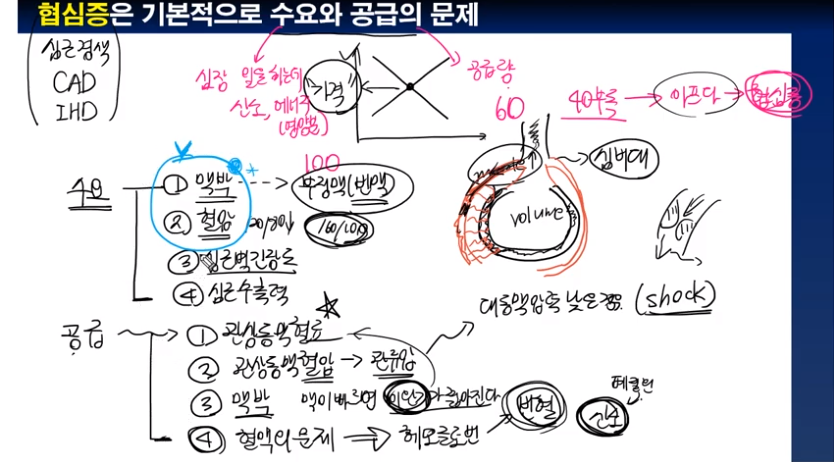 협심증은 기본적으로 수요와 공급의 문제
심근경색
CAD
IHD
심장 일을 하는데
산소,
(영양분)
"가격"
공급량
60
40부족 → 아프다 → 협심증
100
수요
① 맥박 → 부정맥(빈맥)
② 혈압 120/80 160/100
③ 심근벽긴장도
④ 심근수축력
volume
심비대
대동맥압력 낮은 경우 (shock)
공급
① 관상동맥혈류
② 관상동맥혈압 → 관류압
③ 맥박 맥이 빠르면 이완기가 짧아진다
④ 혈액의 문제 ⇒ 헤모글로빈
빈혈
산소